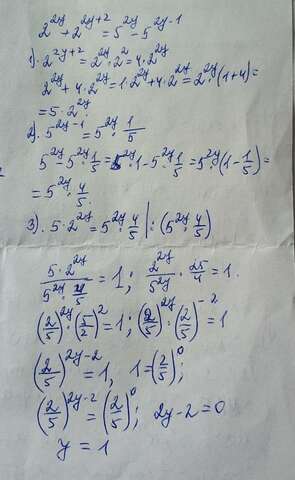 2^{2y} + 2^{2y+2} = 5^{2y} - 5^{2y-1}
1). 2^{2y+2} = 2^{2y} · 2^2 = 4 · 2^{2y}
2^{2y} + 4 · 2^{2y} = 1 · 2^{2y} + 4 · 2^{2y} = 2^{2y} · (1+4) =
= 5 · 2^{2y}
2). 5^{2y-1} = 5^{2y} · 1/5
5^{2y} - 5^{2y} · 1/5 = 5^{2y} · 1 - 5^{2y} · 1/5 = 5^{2y} (1 - 1/5) =
= 5^{2y} · 4/5.
3). 5 · 2^{2y} = 5^{2y} · 4/5 | : (5^{2y} · 4/5)
(5 · 2^{2y})/(5^{2y} · 4/5) = 1; 2^{2y}/5^{2y} · 25/4 = 1.
(2/5)^{2y} · (5/2)^2 = 1; (2/5)^{2y} · (2/5)^{-2} = 1
(2/5)^{2y-2} = 1, 1 = (2/5)^0;
(2/5)^{2y-2} = (2/5)^0; 2y-2 = 0
y = 1